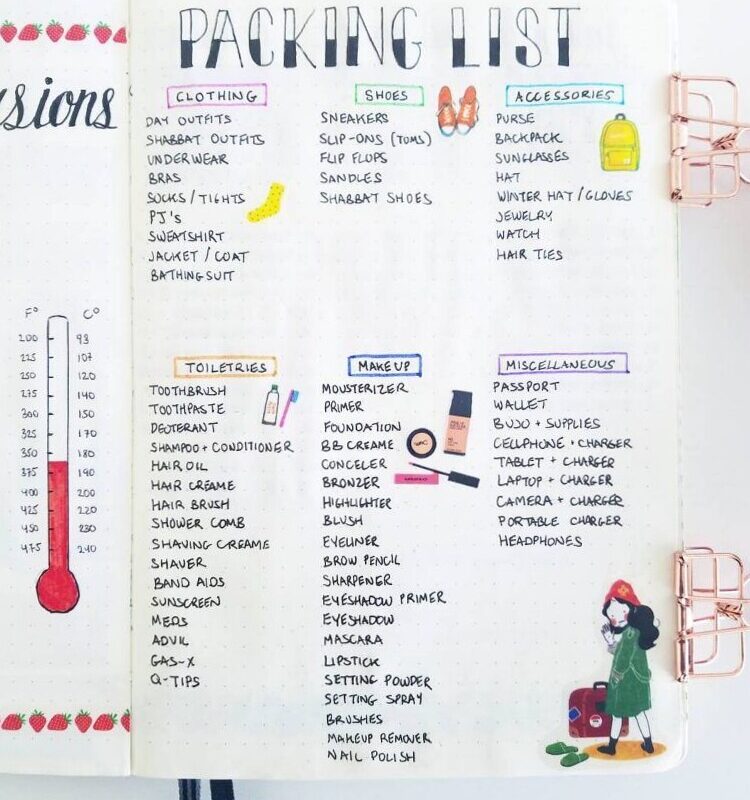 sions
F° C°
200 93
225 107
250 120
275 140
300 150
325 170
350 180
375 190
400 200
425 220
450 230
475 240
PACKING LIST
CLOTHING
DAY OUTFITS
SHABBAT OUTFITS
UNDERWEAR
BRAS
SOCKS / TIGHTS
PJ's
SWEATSHIRT
JACKET / COAT
BATHINGSUIT
SHOES
SNEAKERS
SLIP-ONS (TOMS)
FLIP FLOPS
SANDLES
SHABBAT SHOES
ACCESSORIES
PURSE
BACKPACK
SUNGLASSES
HAT
WINTER HAT / GLOVES
JEWELRY
WATCH
HAIR TIES
TOILETRIES
TOOTHBRUSH
TOOTHPASTE
DEUTERANT
SHAMPOO + CONDITIONER
HAIR OIL
HAIR CREAME
HAIR BRUSH
SHOWER COMB
SHAVING CREAME
SHAVER
BAND AIDS
SUNSCREEN
MEDS
ADVIL
GAS-X
Q-TIPS
MAKEUP
MOUSTERIZER
PRIMER
FOUNDATION
BB CREAME
CONCELER
BRONZER
HIGHLIGHTER
BLUSH
EYELINER
BROW PENCIL
SHARPENER
EYESHADOW PRIMER
EYESHADOW
MASCARA
LIPSTICK
SETTING POWDER
SETTING SPRAY
BRUSHES
MAKEUP REMOVER
NAIL POLISH
MISCELLANEOUS
PASSPORT
WALLET
BUJO + SUPPLIES
CELLPHONE + CHARGER
TABLET + CHARGER
LAPTOP + CHARGER
CAMERA + CHARGER
PORTABLE CHARGER
HEADPHONES